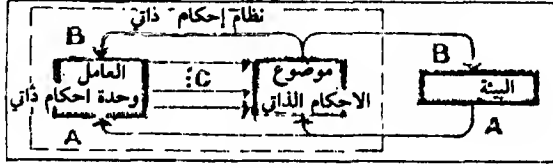 نظام إحكام ذاتي
B
B
العامل
وحدة احكام ذاتي
C
موضوع
الاحكام الذاتي
البيئة
A
A